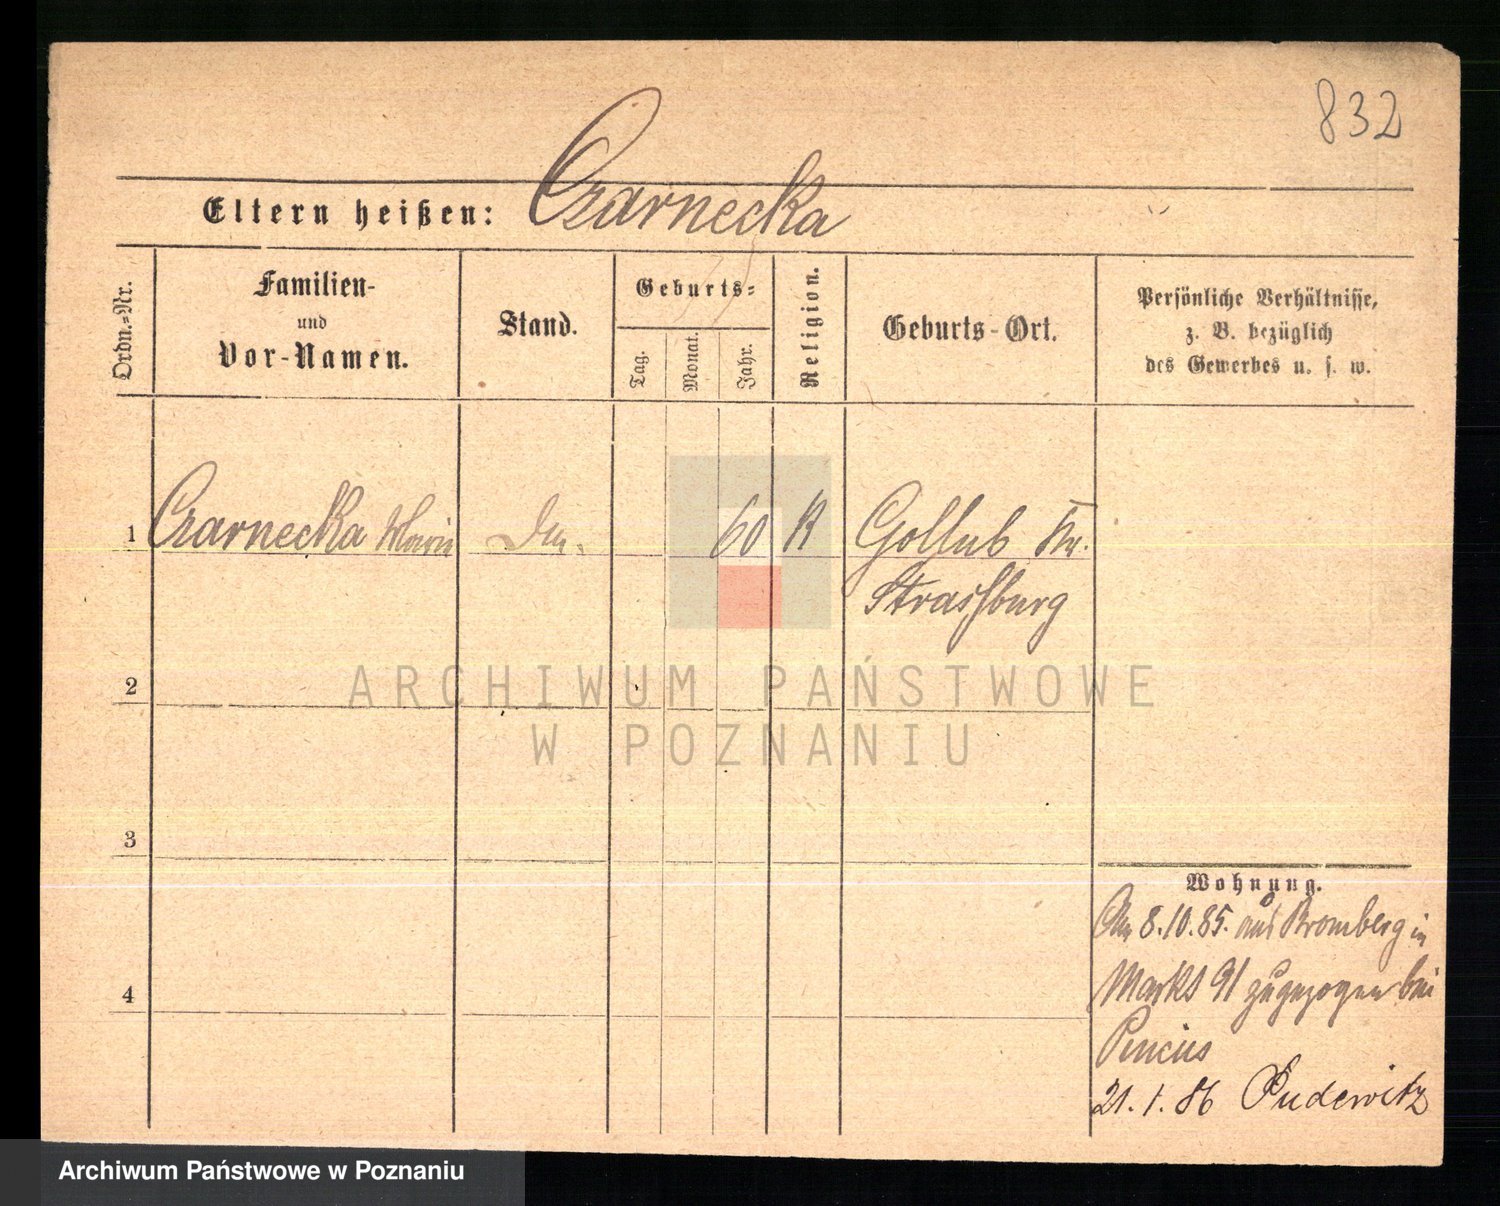 832
Eltern heißen: Czarnecka
Ordn.-Nr.
Familien-
und
Vor-Namen.
Stand.
Geburts-
Tag.
Monat.
Jahr.
Religion.
Geburts-Ort.
Persönliche Verhältnisse,
z. B. bezüglich
des Gewerbes u. s. w.
1 Czarnecka Marie 60 K Gollub Kr.
Strassburg
ARCHIWUM PAŃSTWOWE
W POZNANIU
2
3
4
Wohnung.
Am 8.10.85. aus Bromberg in
Markt 91 zugezogen bei
21.1.86 Pudewitz
Archiwum Państwowe w Poznaniu